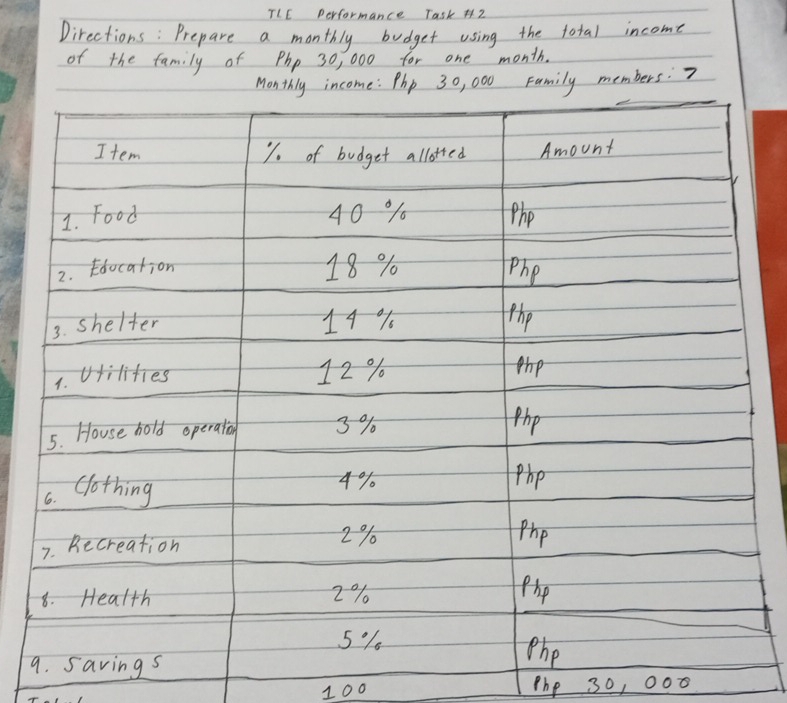 TLE Performance Task #2
Directions: Prepare a monthly budget using the total income
of the family of Php 30,000 for one month.
Monthly income: Php 30,000 Family members: 7
Item % of budget allotted Amount
1. Food 40 % Php
2. Education 18 % Php
3. Shelter 14 % Php
4. Utilities 12 % Php
5. House hold operation 3 % Php
6. Clothing 4 % Php
7. Recreation 2 % Php
8. Health 2 % Php
9. Savings 5 % Php
100 Php 30,000